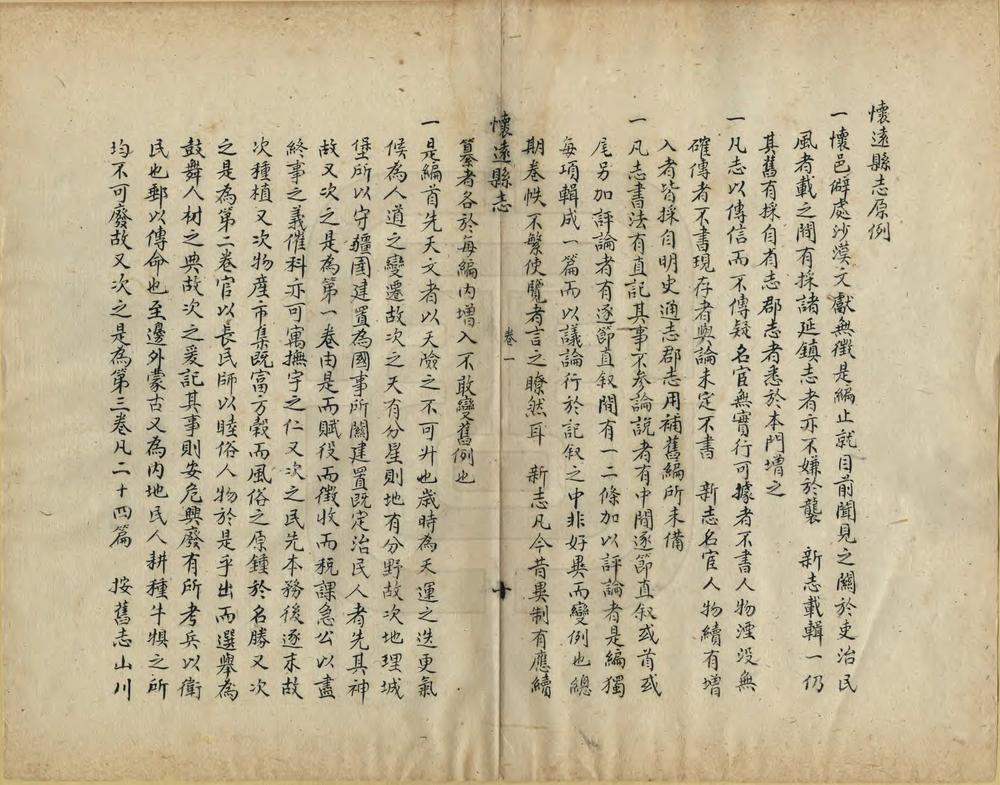 懷遠縣志原例
一懷邑僻處沙漠文獻無徵是編止就目前聞見之關於吏治民
風者載之間有採諸延鎮志者亦不嫌於襲　新志載輯一仍
其舊有採自省志郡志者悉於本門增之
一凡志以傳信而不傳疑名宦無實行可據者不書人物湮沒無
確傳者不書現存者輿論未定不書　新志名宦人物續有增
入者皆採自明史通志郡志用補舊編所未備
一凡志書法有直記其事不參論說者有中間逐節直叙或首或
尾另加評論者有逐節直叙間有一二條加以評論者是編獨
每項輯成一篇而以議論行於記叙之中非好異而變例也總
期卷帙不繁使覽者言之瞭然耳　新志凡今昔異制有應續
懷遠縣志
卷一
十
纂者各於每編內增入不敢變舊例也
一是編首先天文者以天險之不可升也歲時為天運之迭更氣
候為人道之變遷故次之天有分星則地有分野故次地理城
堡所以守疆圉建置為國事所關建置既定治民人者先其神
故又次之是為第一卷由是而賦役而徵收而稅課急公以盡
終事之義催科亦可寓撫字之仁又次之民先本務後逐末故
次種植又次物產市集既富方穀而風俗之原鍾於名勝又次
之是為第二卷官以長民師以睦俗人物於是乎出而選舉為
鼓舞人材之典故次之爰記其事則安危興廢有所考兵以衛
民也郵以傳命也至邊外蒙古又為內地民人耕種牛犋之所
均不可廢故又次之是為第三卷凡二十四篇　按舊志山川